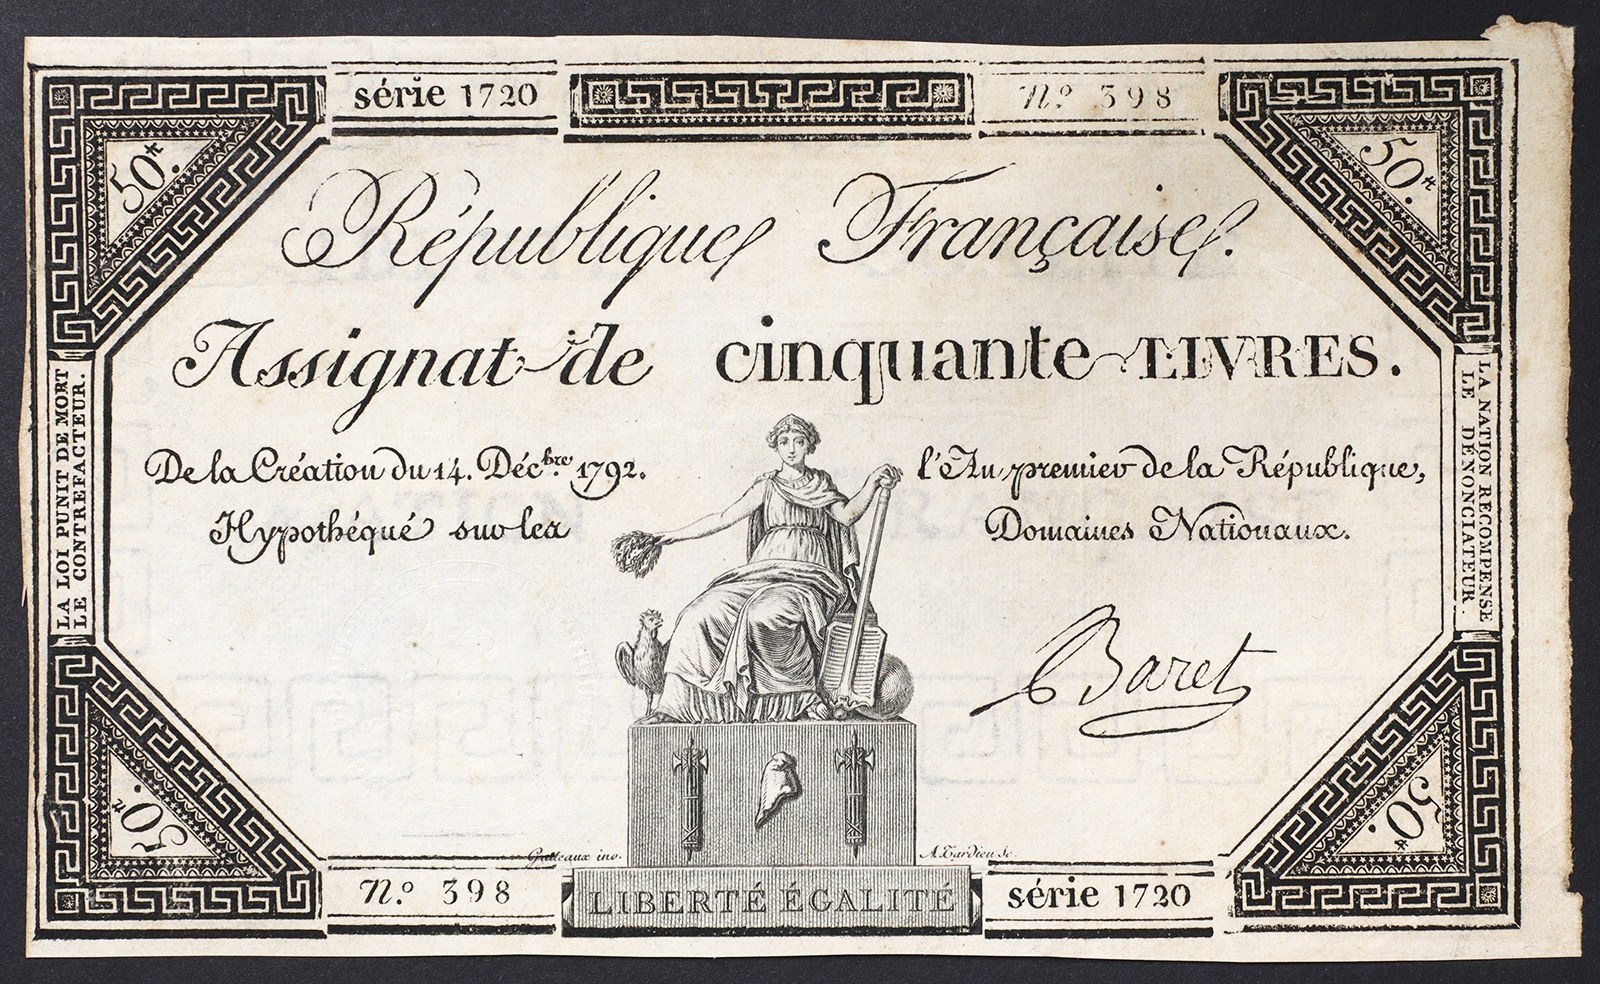 série 1720
Nº 398
50₶.
50₶.
République Française.
Assignat de cinquante LIVRES.
De la Création du 14. Décbre. 1792.
l'An premier de la République,
Hypothéqué sur les
Domaines Nationaux.
LA LOI PUNIT DE MORT
LE CONTREFACTEUR.
LA NATION RECOMPENSE
LE DÉNONCIATEUR.
Baret
50₶.
50₶.
Gatteaux inv.
A. Tardieu Sc.
Nº 398
LIBERTÉ ÉGALITÉ
série 1720